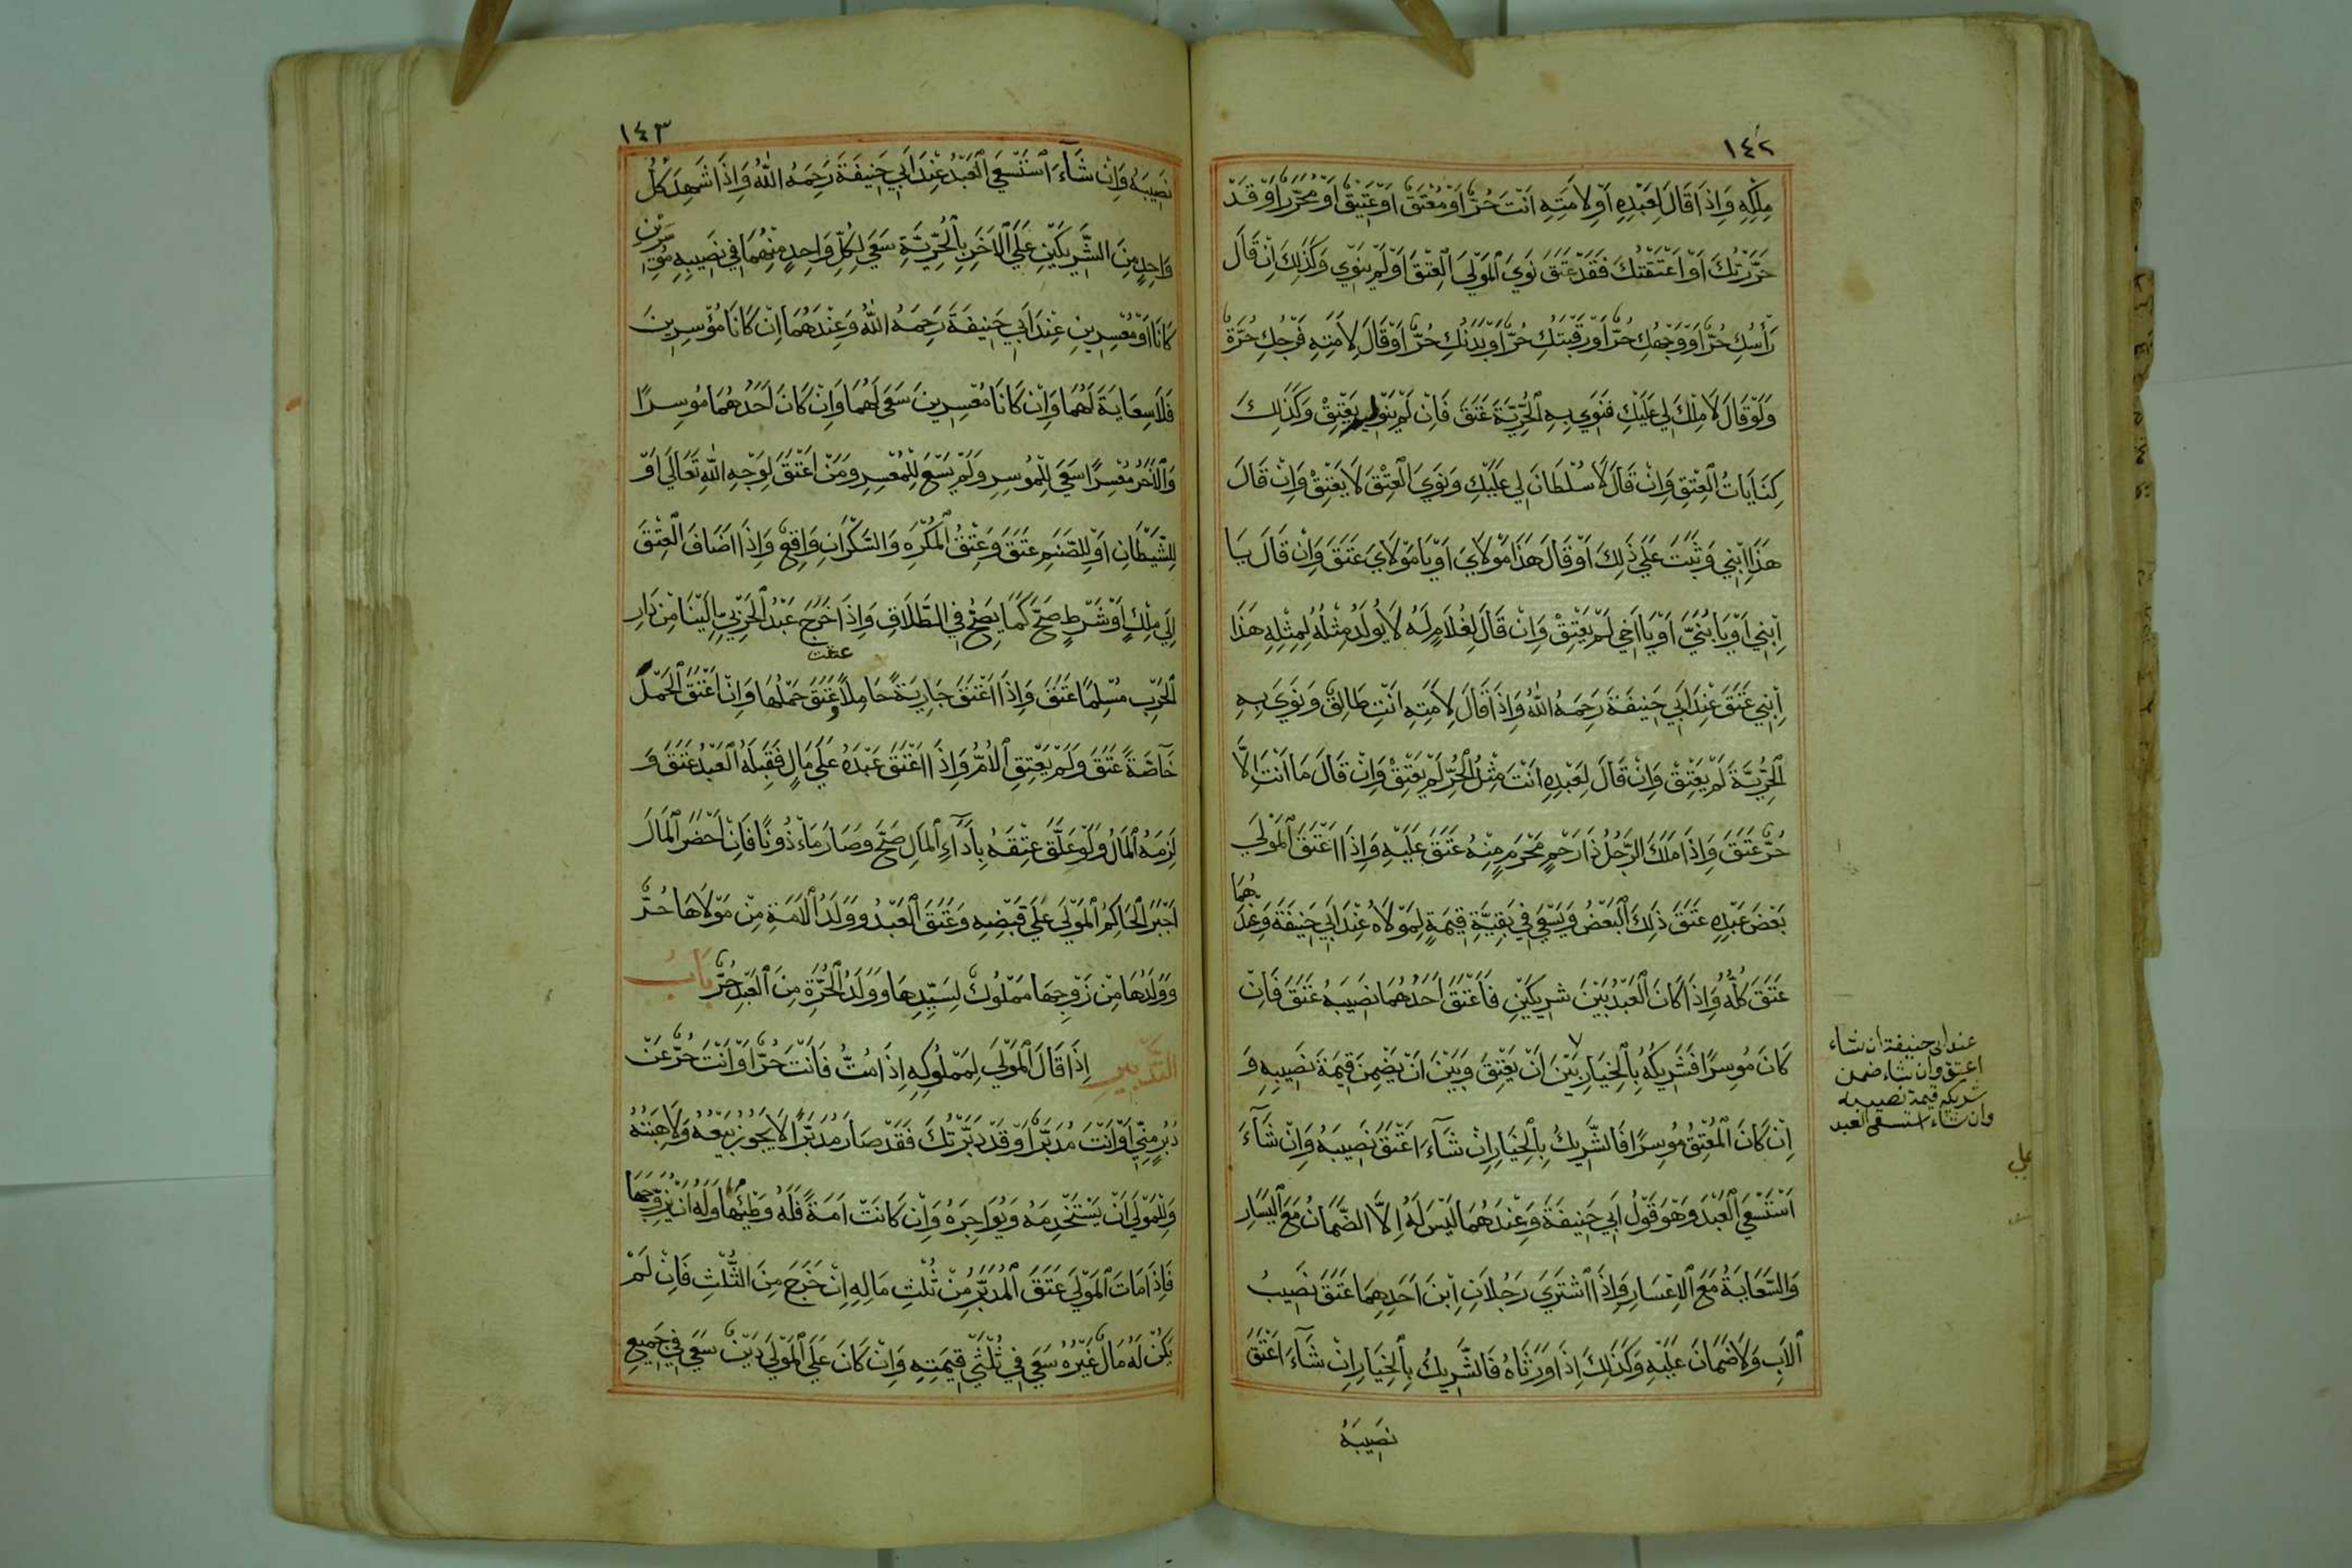 ١٤٢
مِلْكِهِ وَاِذَا قَالَ لِعَبْدِهِ اَوْ لِاَمَتِهِ اَنْتَ حُرٌّ اَوْ مُعْتَقٌ اَوْ عَتِيْقٌ اَوْ مُحَرَّرٌ اَوْ قَدْ
حَرَّرْتُكَ اَوْ اَعْتَقْتُكَ فَقَدْ عَتَقَ نَوَي الْمَوْلَي الْعِتْقَ اَوْ لَمْ يَنْوِي وَكَذَلِكَ اِنْ قَالَ
رَأْسُكِ حُرٌّ اَوْ وَجْهُكِ حُرٌّ اَوْ رَقَبَتُكِ حُرٌّ اَوْ بَدَنُكِ حُرٌّ اَوْ قَالَ لِاَمَتِهِ فَرْجُكِ حُرَّةٌ
وَلَوْ قَالَ لَا مِلْكَ لِي عَلَيْكِ فَنَوَي بِهِ الْحُرِّيَّةَ عَتَقَ فَاِنْ لَمْ يَنْوِ لم يَعْتِقْ وَكَذَلِكَ
كِنَايَاتُ الْعِتْقِ وَاِنْ قَالَ لَا سُلْطَانَ لِي عَلَيْكِ وَنَوَي الْعِتْقَ لَا يَعْتِقْ وَاِنْ قَالَ
هَذَا اِبْنِي وَثَبَتَ عَلَي ذَلِكَ اَوْ قَالَ هَذَا مَوْلَايَ اَوْ يَا مَوْلَايَ عَتَقَ وَاِنْ قَالَ يَا
اِبْنِي اَوْ يَا بُنَيَّ اَوْ يَا اَخِي لَمْ يَعْتِقْ وَاِنْ قَالَ لِغُلَامٍ لَهُ لَا يُولَدُ مِثْلُهُ لِمِثْلِهِ هَذَا
اِبْنِي عَتَقَ عِنْدَ اَبِي حَنِيفَةَ رَحِمَهُ اللهُ وَاِذَا قَالَ لِاَمَتِهِ اَنْتِ طَالِقٌ وَنَوَي بِهِ
الْحُرِّيَّةَ لَمْ يَعْتِقْ وَاِنْ قَالَ لِعَبْدِهِ اَنْتَ مِثْلُ الْحُرِّ لَمْ يَعْتِقْ وَاِنْ قَالَ مَا اَنْتَ اِلَّا
حُرٌّ عَتَقَ وَاِذَا مَلَكَ الرَّجُلُ ذَا رَحِمٍ مَحْرَمٍ مِنْهُ عَتَقَ عَلَيْهِ وَاِذَا اَعْتَقَ الْمَوْلَي
بَعْضَ عَبْدِهِ عَتَقَ ذَلِكَ الْبَعْضُ وَيَسْعَي فِي بَقِيَّةِ قِيمَةٍ لِمَوْلَاهُ عِنْدَ اَبِي حَنِيفَةَ وَعِنْدَهُمَا
عَتَقَ كُلُّهُ وَاِذَا كَانَ الْعَبْدُ بَيْنَ شَرِيكَيْنِ فَاَعْتَقَ اَحَدُهُمَا نَصِيبَهُ عَتَقَ فَاِنْ
كَانَ مُوسِرًا فَشَرِيكُهُ بِالْخِيَارِ بَيْنَ اَنْ يَعْتِقَ وَبَيْنَ اَنْ يَضْمِنَ قِيمَةَ نَصِيبِهِ وَ
اِنْ كَانَ الْمُعْتِقُ مُوسِرًا فَالشَّرِيكُ بِالْخِيَارِ اِنْ شَآءَ اَعْتَقَ نَصِيبَهُ وَاِنْ شَآءَ
اَسْتَسْعَي الْعَبْدَ وَهُوَ قَوْلُ اَبِي حَنِيفَةَ وَعِنْدَهُمَا لَيْسَ لَهُ اِلَّا الضَّمَانُ مَعَ الْيَسَارِ
وَالسَّعَايَةُ مَعَ الْاِعْسَارِ وَاِذَا اشْتَرَي رَجُلَانِ اِبْنَ اَحَدِهِمَا عَتَقَ نَصِيبُ
الْاَبِ وَلَا ضَمَانَ عَلَيْهِ وَكَذَلِكَ اِذَا وَرَثَاهُ فَالشَّرِيكُ بِالْخِيَارِ اِنْ شَآءَ اَعْتَقَ
نَصِيبَهُ
عند ابى حنيفة ان شاء
اعتق وان شاء ضمن
شريكه قيمة نصيبه
وان شاء استسعى العبد
١٤٣
نَصِيبَهُ وَاِنْ شَآءَ اسْتَسْعَي الْعَبْدُ عِنْدَ اَبِي حَنِيفَةَ رَحِمَهُ اللهُ وَاِذَا شَهِدَ كُلُّ
وَاحِدٍ مِنَ الشَّرِيكَيْنِ عَلَي الْآخَرِ بِالْحُرِّيَّةِ سَعَي لِكُلِّ وَاحِدٍ مِنْهُمَا فِي نَصِيبِهِ مُوسِرَيْنِ
كَانَا اَوْ مُعْسِرِينِ عِنْدَ اَبِي حَنِيفَةَ رَحِمَهُ اللهُ وَعِنْدَهُمَا اِنْ كَانَا مُوْسِرِينَ
فَلَا سِعَايَةَ لَهُمَا وَاِنْ كَانَا مُعْسِرِينَ سَعَي لَهُمَا وَاِنْ كَانَ اَحَدُهُمَا مُوسِرًا
وَالْآخَرُ مُعْسِرًا سَعَي لِلْمُوسِرِ وَلَمْ يَسْعَ لِلْمُعْسِرِ وَمَنْ اَعْتَقَ لِوَجْهِ اللهِ تَعَالَي اَوْ
لِلشَّيْطَانِ اَوْ لِلصَّنَمِ عَتَقَ وَعِتْقُ الْمُكْرَهِ وَالسَّكْرَانِ وَاقِعٌ وَاِذَا اَضَافَ الْعِتْقَ
اِلَي مِلْكٍ اَوْ شَرْطٍ صَحَّ كَمَا يَصِحُّ فِي الطَّلَاقِ وَاِذَا خَرَجَ عَبْدُ الْحَرْبِيِّ اِلَيْنَا مِنْ دَارِ
عتقت
الْحَرْبِ مُسْلِمًا عَتَقَ وَاِذَا اَعْتَقَ جَارِيَةً حَامِلًا وعَتَقَ حَمْلُهَا وَاِنْ اَعْتَقَ الْحَمْلَ
خَاصَّةً عَتَقَ وَلَمْ يَعْتِقِ الْاُمُّ وَاِذَا اَعْتَقَ عَبْدَهُ عَلَي مَالٍ فَقَبِلَهُ الْعَبْدُ عَتَقَ وَ
لَزِمَهُ الْمَالُ وَلَوْ عَلَّقَ عِتْقَهُ بِاَدَآءِ الْمَالِ صَحَّ وَصَارَ مَاْذُونًا فَاِنْ اَحْضَرَ الْمَالَ
اَجْبَرَ الْحَاكِمُ الْمَوْلَي عَلَي قَبْضِهِ وَعَتَقَ الْعَبْدُ وَوَلَدُ الْاَمَةِ مِنْ مَوْلَاهَا حُرٌّ
وَوَلَدُهَا مِنْ زَوْجِهَا مَمْلُوكٌ لِسَيِّدِهَا وَوَلَدُ الْحُرَّةِ مِنَ الْعَبْدِ حُرٌّ بَابُ
التَّدْبِيرِ اِذَا قَالَ الْمَوْلَي لِمَمْلُوكِهِ اِذَا مُتُّ فَاَنْتَ حُرٌّ اَوْ اَنْتَ حُرٌّ عَنْ
دُبُرٍ مِنِّي اَوْ اَنْتَ مُدَبَّرٌ اَوْ قَدْ دَبَّرْتُكَ فَقَدْ صَارَ مُدَبَّرًا لَا يَجُوزُ بَيْعُهُ وَلَا هِبَتُهُ
وَلِلْمَوْلَي اَنْ يَسْتَخْدِمَهُ وَيُوَاجِرَهُ وَاِنْ كَانَتْ اَمَةً فَلَهُ وَطْئُهَا وَلَهُ اَنْ يُزَوِّجَهَا
فَاِذَا مَاتَ الْمَوْلَي عَتَقَ الْمُدَبَّرُ مِنْ ثُلْثِ مَالِهِ اِنْ خَرَجَ مِنَ الثُّلْثِ فَاِنْ لَمْ
يَكُنْ لَهُ مَالٌ غَيْرُهُ سَعَي فِي ثُلْثَيْ قِيمَتِهِ وَاِنْ كَانَ عَلَي الْمَوْلَي دَيْنٌ سَعَي فِي جَمِيعِ